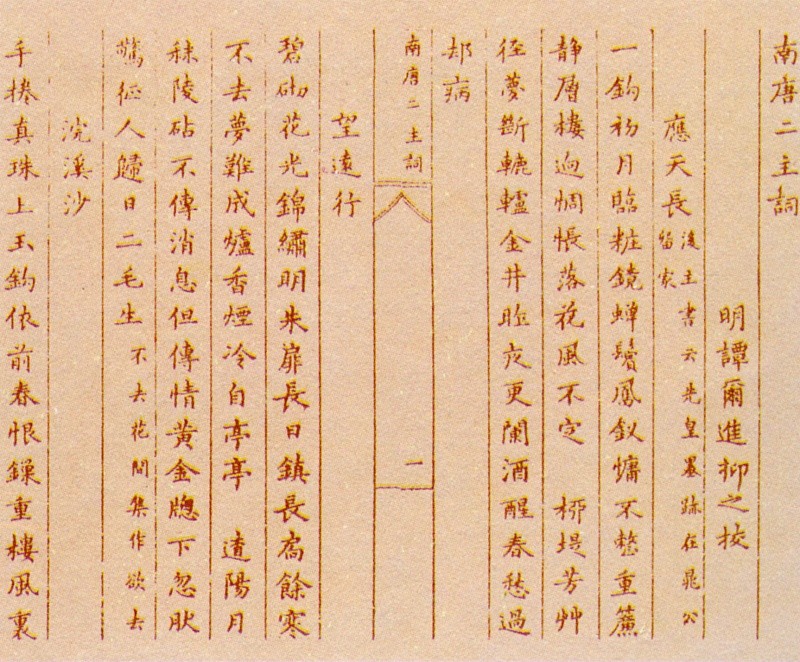 南唐二主詞
明譚爾進抑之挍
應天長後主書云先皇墨跡在晁公留家
一鈎初月臨粧鏡蟬鬢鳳釵慵不整重簾
静層樓逈惆悵落花風不定　栁堤芳艸
徑夢斷轆轤金井昨夜更闌酒醒春愁過
却病
南唐二主詞　一
望遠行
碧砌花光錦繡明朱扉長日鎮長扃餘寒
不去夢難成爐香煙冷自亭亭　遼陽月
秣陵砧不傳消息但傳情黄金牕下忽肰
驚征人歸日二毛生不去花間集作欲去
浣溪沙
手捲真珠上玉鈎依前春恨鏁重樓風裏